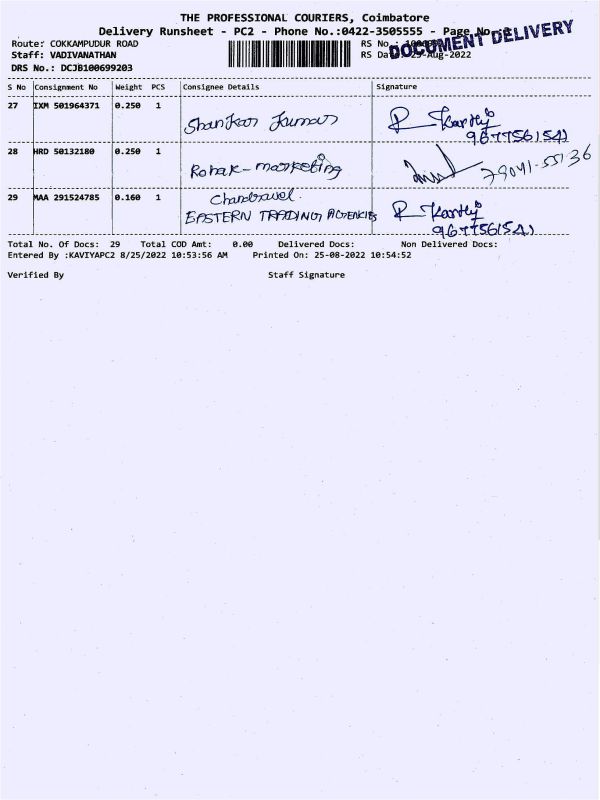 THE PROFESSIONAL COURIERS, Coimbatore
Delivery Runsheet - PC2 - Phone No.:0422-3505555 - Page No
DOCUMENT DELIVERY
Route: COKKAMPUDUR ROAD RS No :
Staff: VADIVANATHAN RS Da 25-Aug-2022
DRS No.: DCJB100699203
S No Consignment No Weight PCS Consignee Details Signature
27 IXM 501964371 0.250 1 Shankar Kumar R Karthi
9677561541
28 HRD 50132180 0.250 1 Rohak-marketing 79041-55136
29 MAA 291524785 0.160 1 Chandravel. R Karthi
EASTERN TRADING AGENCIES 9677561541
Total No. Of Docs: 29 Total COD Amt: 0.00 Delivered Docs: Non Delivered Docs:
Entered By :KAVIYAPC2 8/25/2022 10:53:56 AM Printed On: 25-08-2022 10:54:52
Verified By Staff Signature